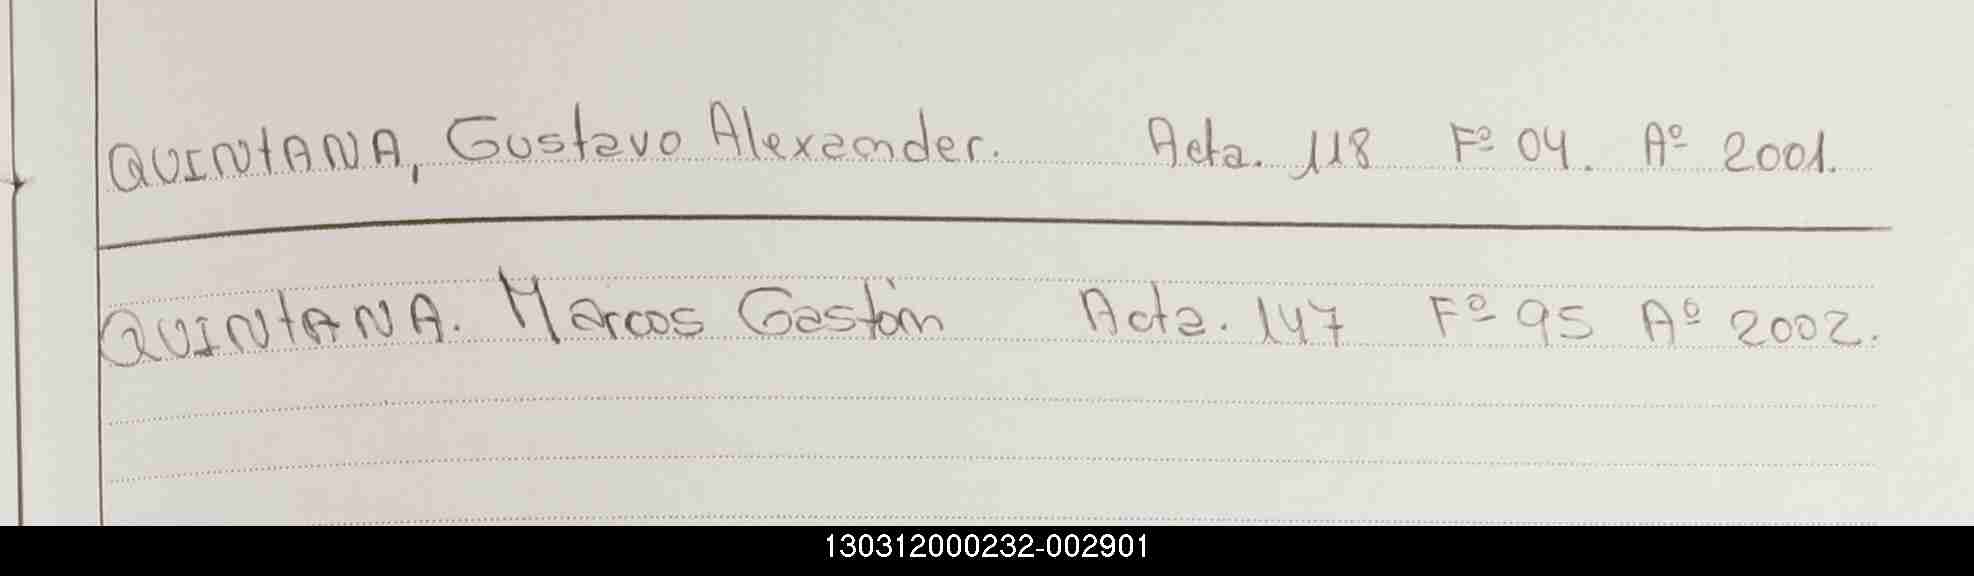 QUINTANA, Gustavo Alexander. Acta. 118 Fº 04. Aº 2001.
QUINTANA. Marcos Gastón Acta. 147 Fº 95 Aº 2002.
130312000232-002901